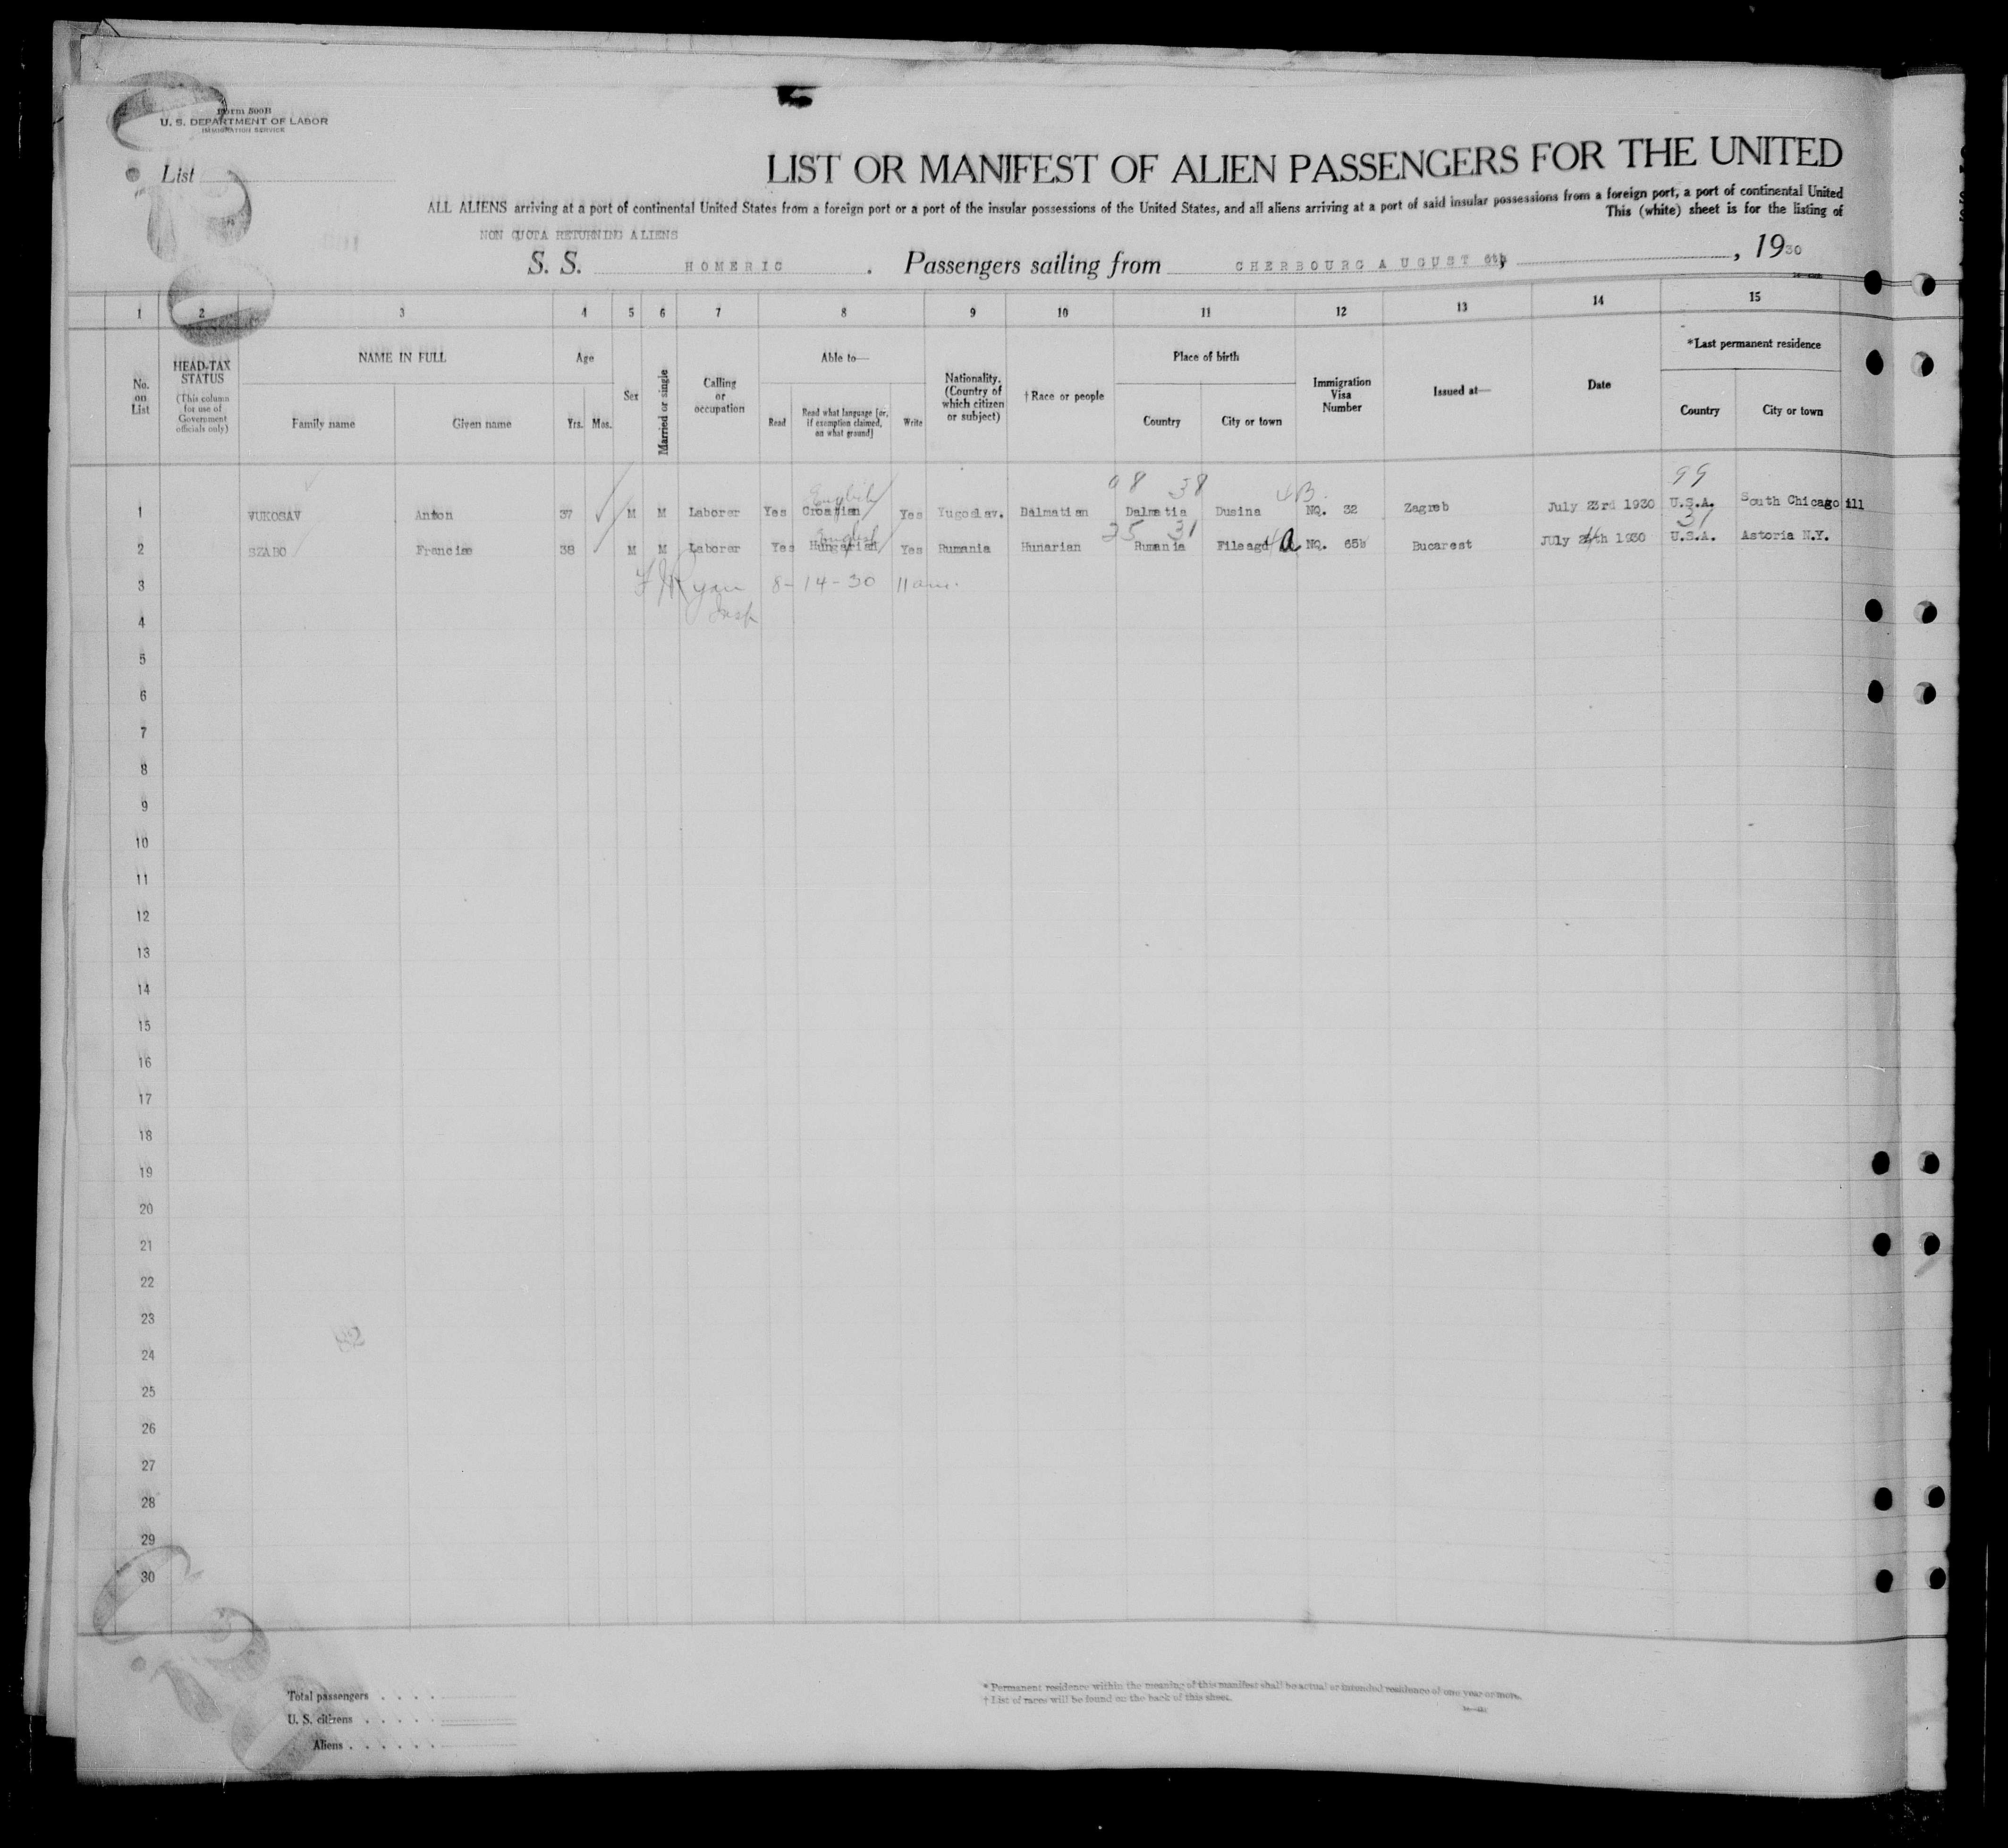 Form 500B
U. S. DEPARTMENT OF LABOR
IMMIGRATION SERVICE
List
LIST OR MANIFEST OF ALIEN PASSENGERS FOR THE UNITED
ALL ALIENS arriving at a port of continental United States from a foreign port or a port of the insular possessions of the United States, and all aliens arriving at a port of said insular possessions from a foreign port, a port of continental United
This (white) sheet is for the listing of
NON QUOTA RETURNING ALIENS
S. S. HOMERIC . Passengers sailing from CHERBOURG AUGUST 6th, , 1930
1 2 3 4 5 6 7 8 9 10 11 12 13 14 15
No. on List
HEAD-TAX STATUS (This column for use of Government officials only)
NAME IN FULL
Family name Given name
Age
Yrs. Mos.
Sex
Married or single
Calling or occupation
Able to—
Read Read what language [or, if exemption claimed, on what ground] Write
Nationality. (Country of which citizen or subject)
†Race or people
Place of birth
Country City or town
Immigration Visa Number
Issued at—
Date
*Last permanent residence
Country City or town
98 38 99
English
1 VUKOSAV Anton 37 M M Laborer Yes Croatian Yes Yugoslav. Dalmatian Dalmatia Dusina NQ. 32 Zagreb July 23rd 1930 U.S.A. South Chicago ill
English 25 31 31
2 SZABO Francise 38 M M Laborer Yes Hungarian Yes Rumania Hunarian Rumania Fileago NQ. 65 Bucarest JUly 24th 1930 U.S.A. Astoria N.Y.
3 F J Ryan 8-14-30 11 am.
Insp
4
5
6
7
8
9
10
11
12
13
14
15
16
17
18
19
20
21
22
23
24
25
26
27
28
29
30
Total passengers
U. S. citizens
Aliens
* Permanent residence within the meaning of this manifest shall be actual or intended residence of one year or more.
† List of races will be found on the back of this sheet.